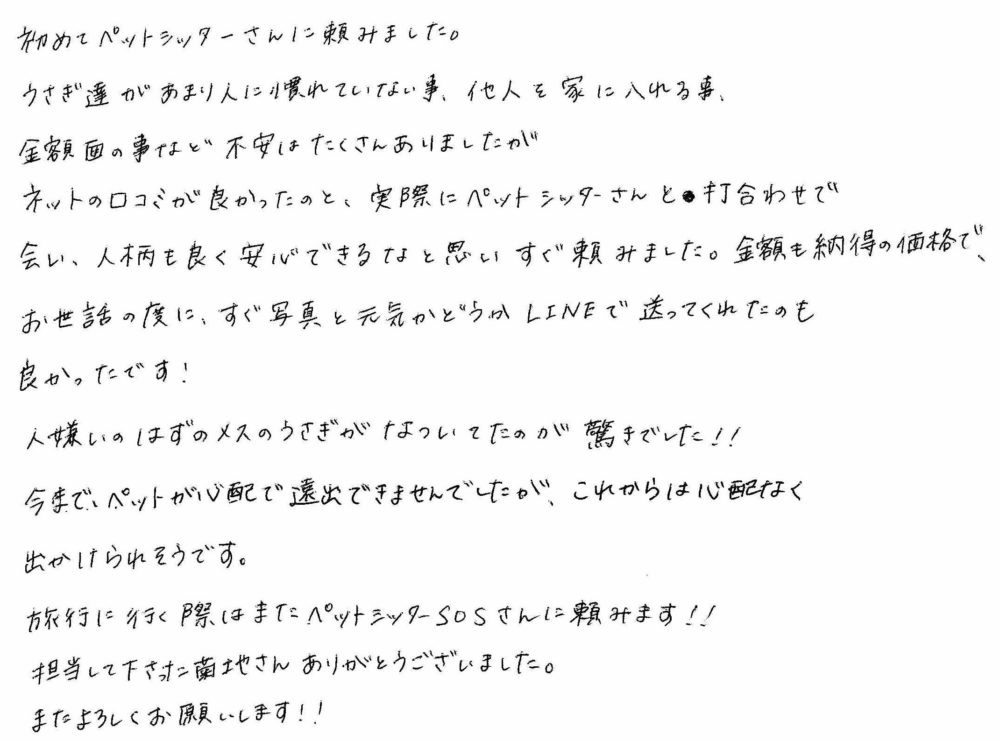 初めてペットシッターさんに頼みました。
うさぎ達があまり人に慣れていない事、他人を家に入れる事、
金額面の事など不安はたくさんありましたが
ネットの口コミが良かったのと、実際にペットシッターさんと打合わせで
会い、人柄も良く安心できるなと思いすぐ頼みました。金額も納得の価格で、
お世話の度に、すぐ写真と元気かどうかLINEで送ってくれたのも
良かったです!
人嫌いのはずのメスのうさぎがなついてたのが驚きでした!!
今まで、ペットが心配で遠出できませんでしたが、これからは心配なく
出かけられそうです。
旅行に行く際はまたペットシッターSOSさんに頼みます!!
担当して下さった菊地さんありがとうございました。
またよろしくお願いします!!